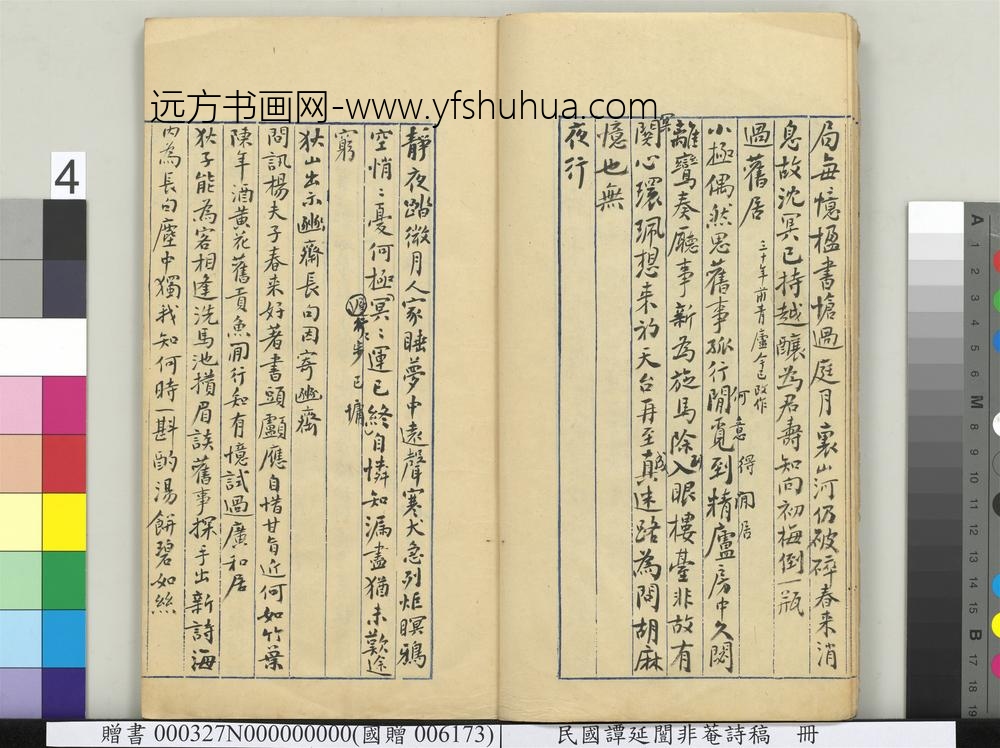 远方书画网-www.yfshuhua.com
局每憶楹書愴過庭月裏山河仍破碎春来消
息故沈冥已持越釀為君壽知向初梅倒一瓶
過舊居
三十年前青廬今已改作
小極偶然思舊事孤行閒覓到精廬房中久闕
何意得閒居
離鸞奏廳事新為旋馬除入眼樓臺非故有
關心環珮想来初天台再至真迷路為問胡麻
憶也無
夜行
靜夜踏微月人家睡夢中遠聲寒犬急列炬暝鴉
空悄〻憂何極冥〻運已終自憐知漏盡猶未歎途
窮
步已墉
狄山出示齋長句因寄齋
問訊楊夫子春来好著書頭顱應自惜甘旨近何如竹葉
陳年酒黃花舊貢魚閒行知有憶試過廣和居
狄子能為客相逢洗馬池攢眉談舊事探手出新詩海
內為長句塵中獨我知何時一斟酌湯餅碧如絲
4
A
1
2
3
4
5
M
8
9
10
11
12
13
14
15
B
17
18
19
贈書 000327N000000000(國贈 006173)
民國譚延闓非菴詩稿 冊